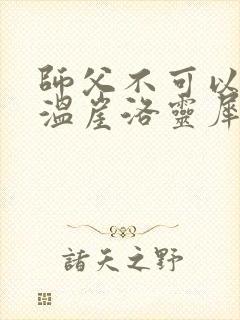 師父不可以
溫崖洛靈犀
諸天之野